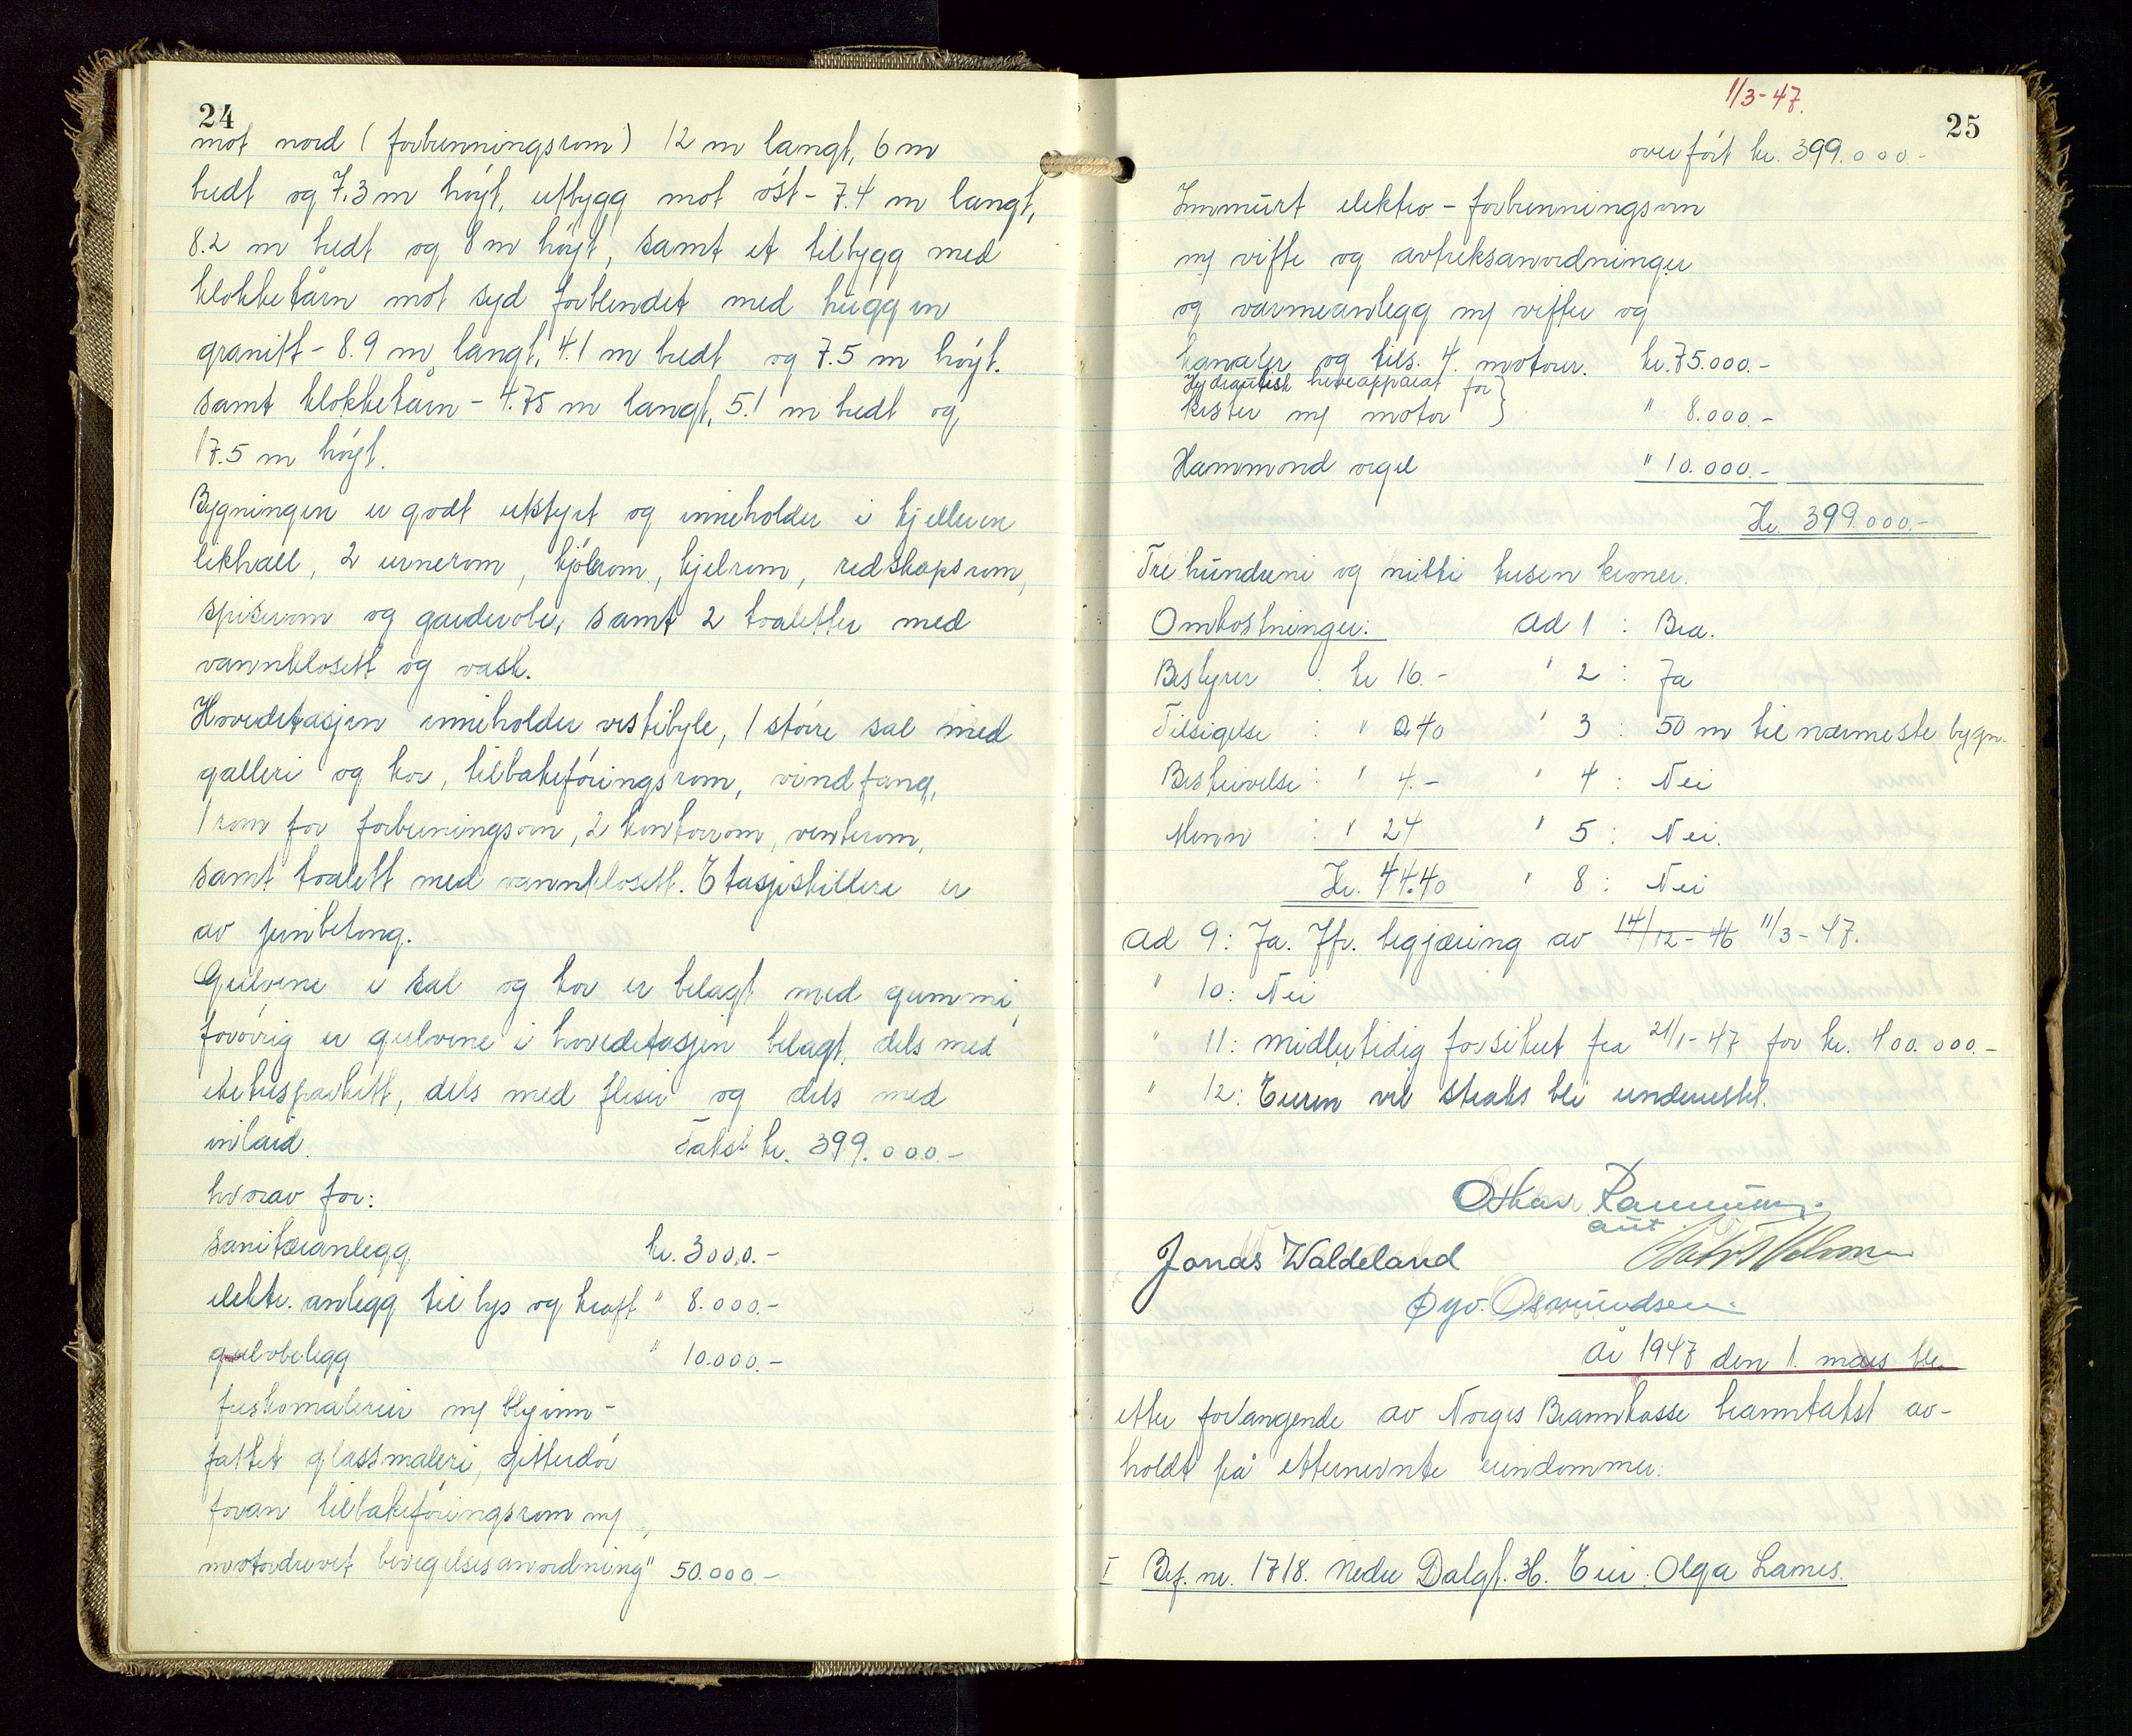 24
mot nord (forbrenningsrom) 12 m langt, 6 m
bredt og 7.3 m høyt, utbygg mot øst - 7.4 m langt,
8.2 m bredt og 8 m høyt, samt et tilbygg med
klokketårn mot syd forblendet med huggen
granitt - 8.9 m langt, 4.1 m bredt og 7.5 m høyt.
samt klokketårn - 4.75 m langt, 5.1 m bredt og
17.5 m høyt.
Bygningen er godt utstyrt og inneholder i kjelleren
likhall, 2 urnerom, kjølerom, kjelrom, redskapsrom,
spiserom og garderober, samt 2 toaletter med
vannklosett og vask.
Hovedetasjen inneholder vestibyle, 1 større sal med
galleri og kor, tilbakeføringsrom, vindfang,
1 rom for forbrenningsovn, 2 kontorrom, venterom,
samt toalett med vannklosett. Etasjeskillere er
av jernbetong.
Gulvene i sal og kor er belagt med gummi,
forøvrig er gulvene i hovedetasjen belagt, dels med
ekekusparkett, dels med fliser og dels med
inlaid. Takst kr. 399.000.-
hvorav for:
sanitæranlegg kr. 3000.-
elektr. anlegg til lys og kraft " 8.000.-
gulvbelegg " 10.000.-
freskomalerier m/ blyinn-
fattet glassmaleri, gitterdør
foran tilbakeføringsrom m/
motordrevet bevegelsesanordning " 50.000-
11/3-47.
25
overført kr. 399.000.-
Innmurt elektro-forbrenningsovn
m/ vifte og avtreksanordninger
og varmeanlegg m/ vifter og
kanaler og tils. 4. motorer. kr. 75.000.-
Hydraulisk heveapparat for }
kister m/ motor } " 8.000.-
Hammond orgel " 10.000.-
Kr. 399.000.-
Tre hundreni og nitti tusen kroner.
Omkostninger: ad 1 : Bra.
Bestyrer : kr 16.- " 2 : Ja
Tilsigelse : " 0.40 " 3 : 50 m til nærmeste bygn.
Beskrivelse : " 4.- " 4 : Nei
Menn : " 24 " 5 : Nei.
Kr. 44.40 " 8 : Nei
ad 9: Ja. Jfr. begjæring av 14/12-46 11/3-47.
" 10: Nei
" 11: midlertidig forsikret fra 21/1-47 for kr. 400.000.-
" 12: Eieren vil straks bli underrettet.
Oskar
aut.
Jonas Waldeland
Øyv. Osmundsen.
År 1947 den 11. mars ble
etter forlangende av Norges Brannkasse branntakst av-
holdt på etternevnte eiendommer:
I Bef. nr. 1718. Nedre Dalgt. 36. Eier: Olga Larnes.